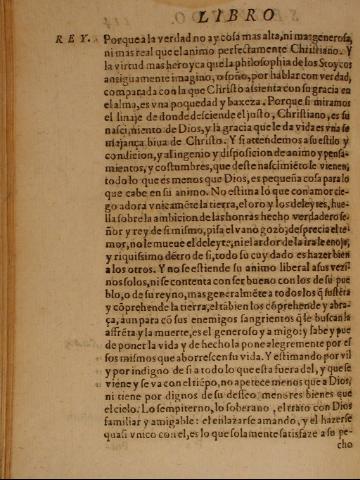 LIBRO
REY. Porque a la verdad no ay cosa mas alta, ni mas generosa,
ni mas real que el animo perfectamente Christiano. Y
la virtud mas heroyca que la philosophia de los Stoycos
antiguamente imagino, o soño, por hablar con verdad,
comparada con la que Christo assienta con su gracia en
el alma, es vna poquedad y baxeza. Porque si miramos
el linaje de donde desciende el justo, Christiano, es su
nascimiento de Dios, y la gracia que le da vida es vna se
majança biua de Christo. Y si attendemos a su estilo y
condicion, y al ingenio y disposicion de animo y pensa-
mientos, y costumbres, que deste nascimiēto le vienen,
todo lo que es menos que Dios, es pequeña cosa para lo
que cabe en su animo. No estima lo que con amor cie-
go adora vnicamēte la tierra, el oro y los deleytes, hue-
lla sobre la ambicion de las honras hecho verdadero se-
ñor y rey de si mismo, pisa el vano gozo, desprecia el te-
mor, no le mueue el deleyte, ni el ardor de la ira le enoja,
y riquissimo dētro de si, todo su cuydado es hazer bien
a los otros. Y no se estiende su animo liberal a sus vezi-
nos solos, ni se contenta con ser bueno con los de su pue
blo, o de su reyno, mas generalmēte a todos los q̃ sustēta
y cōprehende la tierra, el tābien los cōprehende y abra-
ça, aun para cō sus enemigos sangrientos que le buscan la
affrēta y la muerte, es el generoso y amigo: y sabe y pue
de poner la vida y de hecho la pone alegremente por es
sos mismos que aborrescen su vida. Y estimando por vil
y por indigno de si a todo lo que esta fuera del, y que se
viene y se va con el tiēpo, no apetece menos que a Dios,
ni tiene por dignos de su desseo menores bienes que
el cielo. Lo sempiterno, lo soberano, el trato con Dios
familiar y amigable: el enlazarse amando, y el hazerse
quasi vnico con el, es lo que solamente satisfaze a su pe-
cho